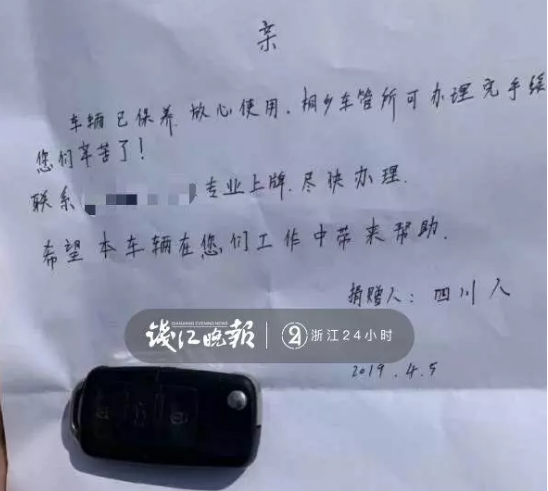 亲
车辆已保养放心使用.桐乡车管所可办理完手续
您们辛苦了!
联系 专业上牌.尽快办理.
希望本车辆在您们工作中带来帮助.
捐赠人:四川人
钱江晚报 QIANJIANG EVENING NEWS 24 浙江24小时
2019.4.5